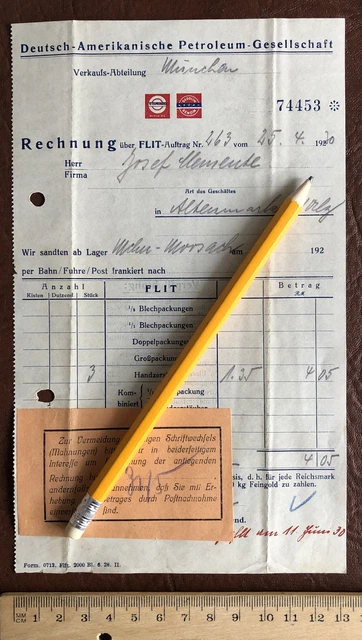 Deutsch-Amerikanische Petroleum-Gesellschaft
Verkaufs-Abteilung München
74453
Rechnung über FLIT-Auftrag Nr. 463 vom 25. 4. 1930
Herr
Firma
Josef
Art des Geschäftes
in
Wir sandten ab Lager 192
per Bahn/Fuhre/Post frankiert nach
Anzahl FLIT Betrag
Kisten Dutzend Stück RM
Blechpackungen
Blechpackungen
Doppelpackung
Großpackung
3 1.35 4 05
Kom-
biniert packung
4 05
Zur Vermeidung Schriftwechsels
(Mahnungen) in beiderseitigem
Interesse der anliegenden
Rechnung
daß Sie mit Er-
hebung Betrages durch Postnachnahme
sind.
sis, d. h. für jede Reichsmark
kg Feingold zu zahlen.
am 11 Juni 30
Form. 0713. 2000 Bl. 6. 28. II.
MM
CM 1 2 3 4 5 6 7 8 9 10 11 12 13